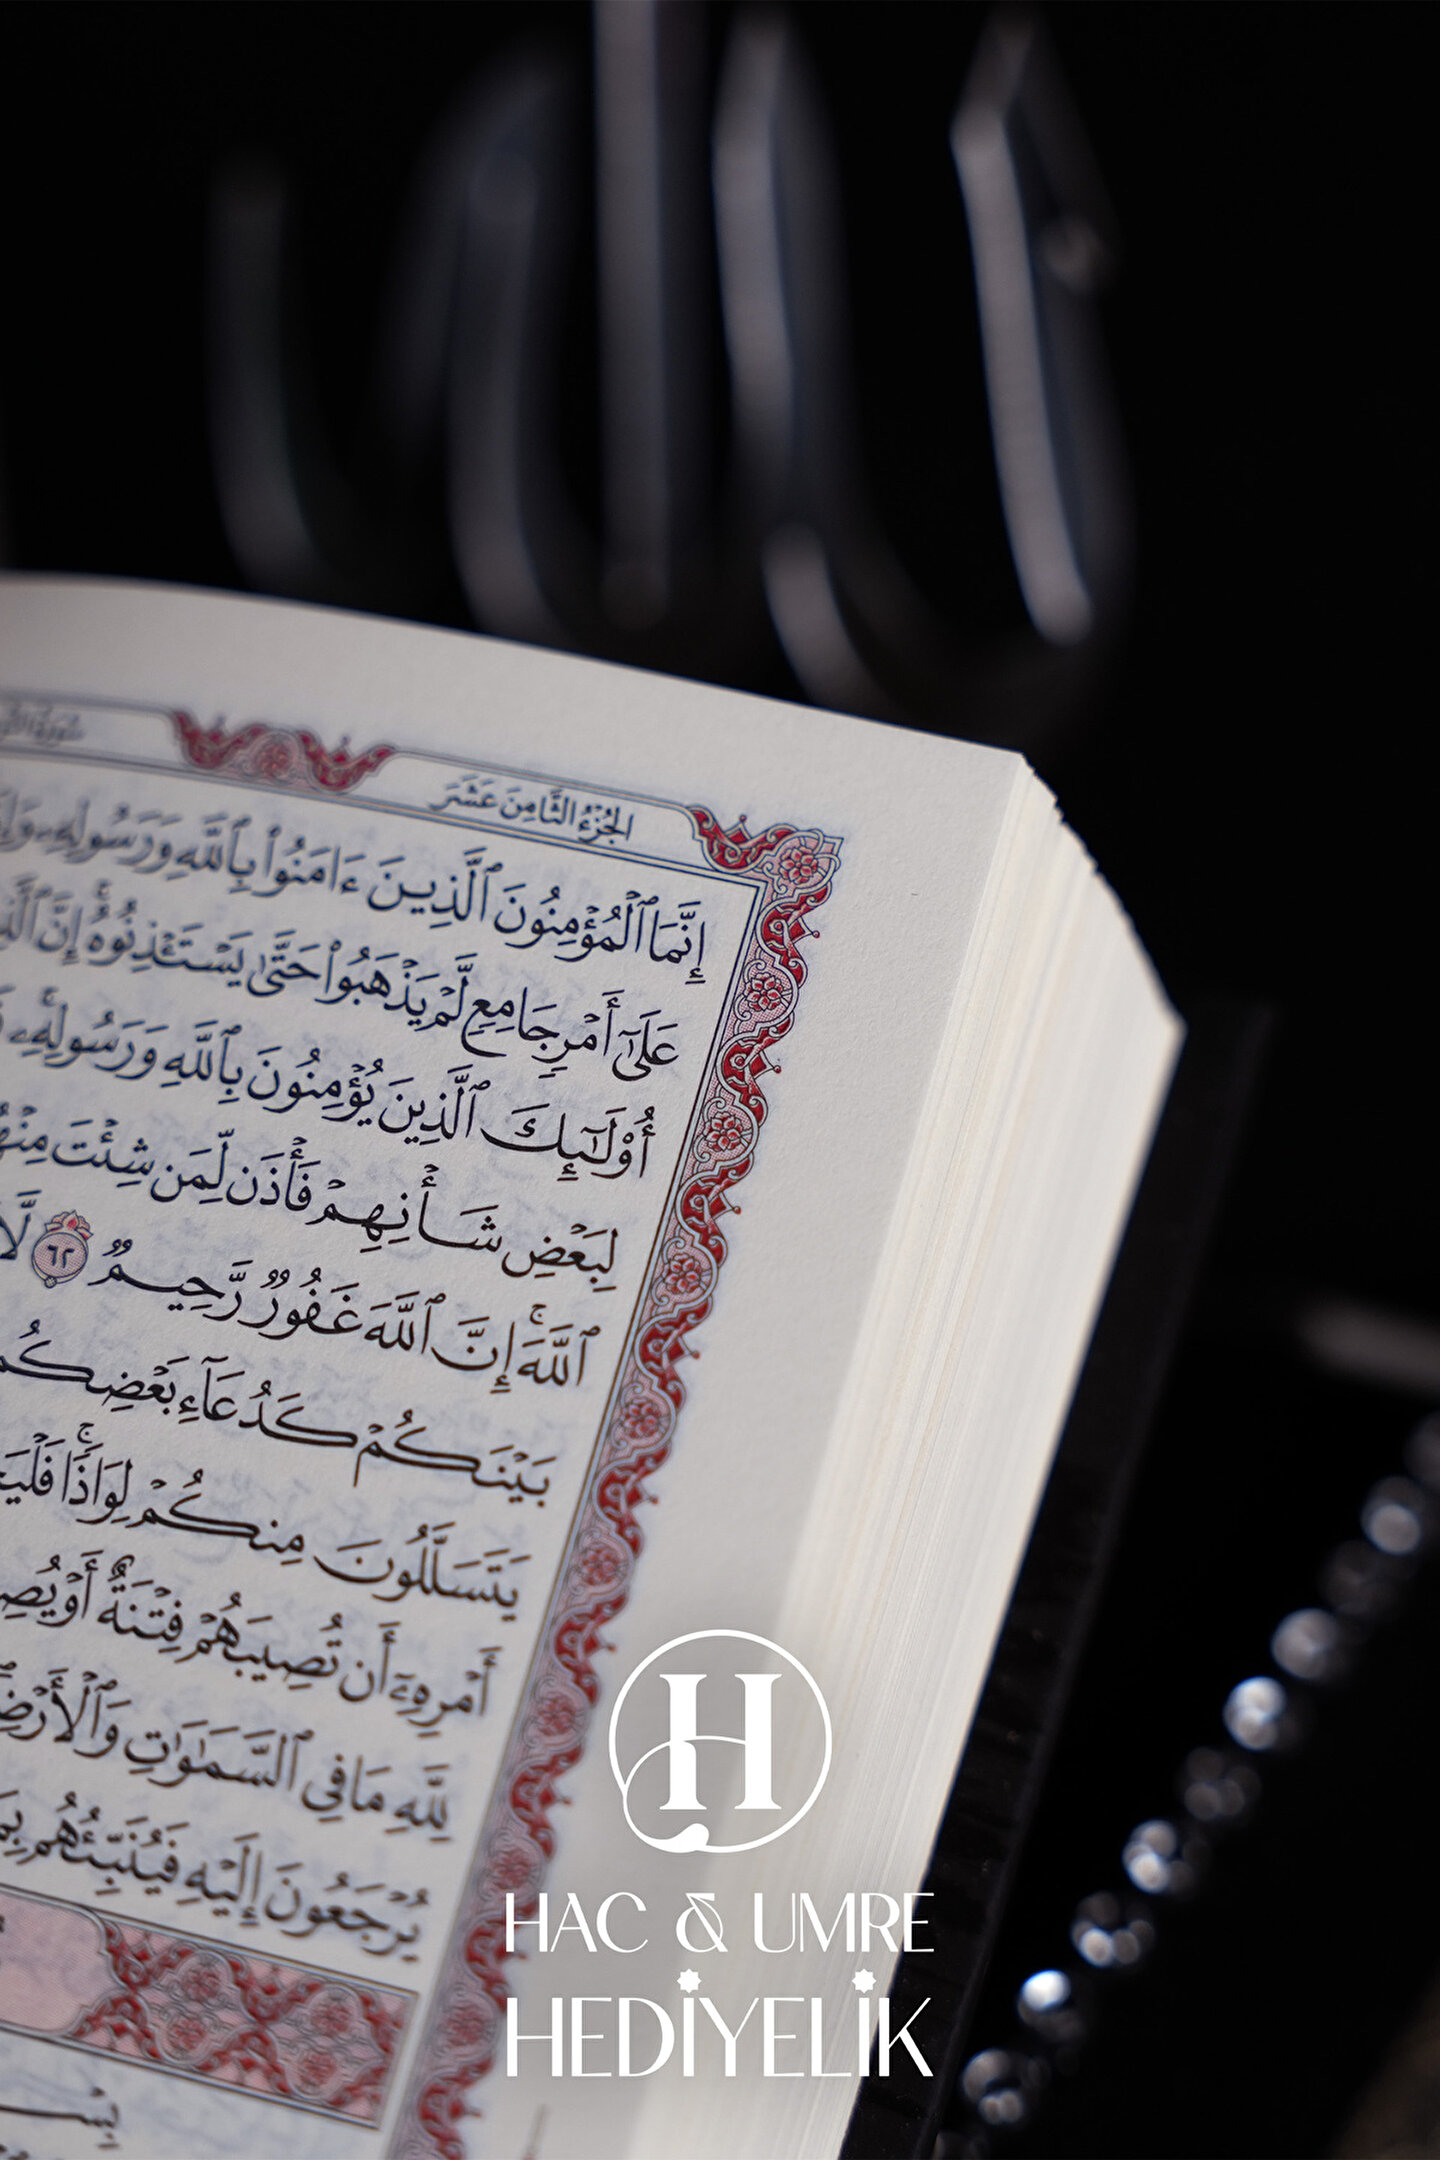 الجُزْءُ الثَّامِنَ عَشَرَ
إِنَّمَا ٱلْمُؤْمِنُونَ ٱلَّذِينَ ءَامَنُوا۟ بِٱللَّهِ وَرَسُولِهِۦ
عَلَىٰٓ أَمْرٍ جَامِعٍ لَّمْ يَذْهَبُوا۟ حَتَّىٰ يَسْتَـْٔذِنُوهُ ۚ إِنَّ
أُو۟لَـٰٓئِكَ ٱلَّذِينَ يُؤْمِنُونَ بِٱللَّهِ وَرَسُولِهِۦ ۚ
لِبَعْضِ شَأْنِهِمْ فَأْذَن لِّمَن شِئْتَ
ٱللَّهَ ۚ إِنَّ ٱللَّهَ غَفُورٌ رَّحِيمٌ ٦٢ لَّا
بَيْنَكُمْ كَدُعَآءِ بَعْضِكُم
يَتَسَلَّلُونَ مِنكُمْ لِوَاذًا ۚ
أَمْرِهِۦٓ أَن تُصِيبَهُمْ فِتْنَةٌ أَوْ
لِلَّهِ مَا فِى ٱلسَّمَـٰوَٰتِ وَٱلْأَرْضِ
يُرْجَعُونَ إِلَيْهِ فَيُنَبِّئُهُم
H
HAC & UMRE
HEDİYELİK